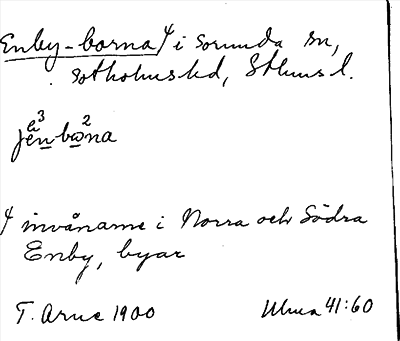 Enby-borna ⁴ i Sorunda sn,
Sotholms hd, Sthlms l.
jen³bɷ²na
⁴ invånarne i Norra och Södra
Enby, byar
T. Arne 1900
Uhua 41:60